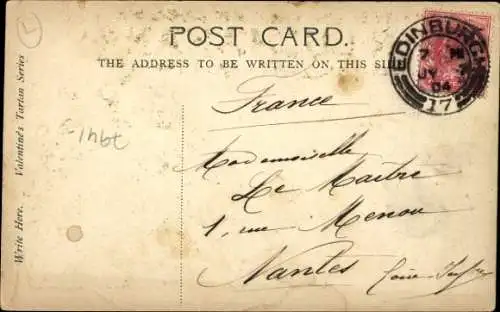 POST CARD.
THE ADDRESS TO BE WRITTEN ON THIS SIDE
EDINBURGH
JY
04
17
France
Mademoiselle
Le Maître
1, rue Menou
Nantes
Loire Infre
Write Here. Valentine's Tartan Series
L